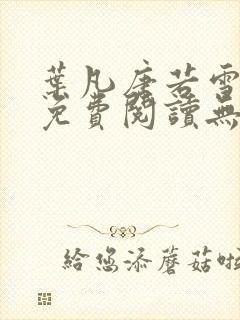 葉凡唐若雪
免費閱讀無
給您添蘑菇啦